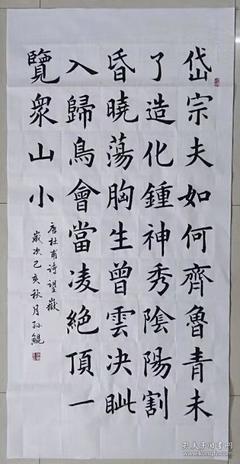 岱宗夫如何齊魯青未
了造化鍾神秀陰陽割
昏曉蕩胸生曾雲決眦
入歸鳥會當凌絕頂一
覽衆山小
唐杜甫詩望嶽
歲次己亥秋月孫鯤